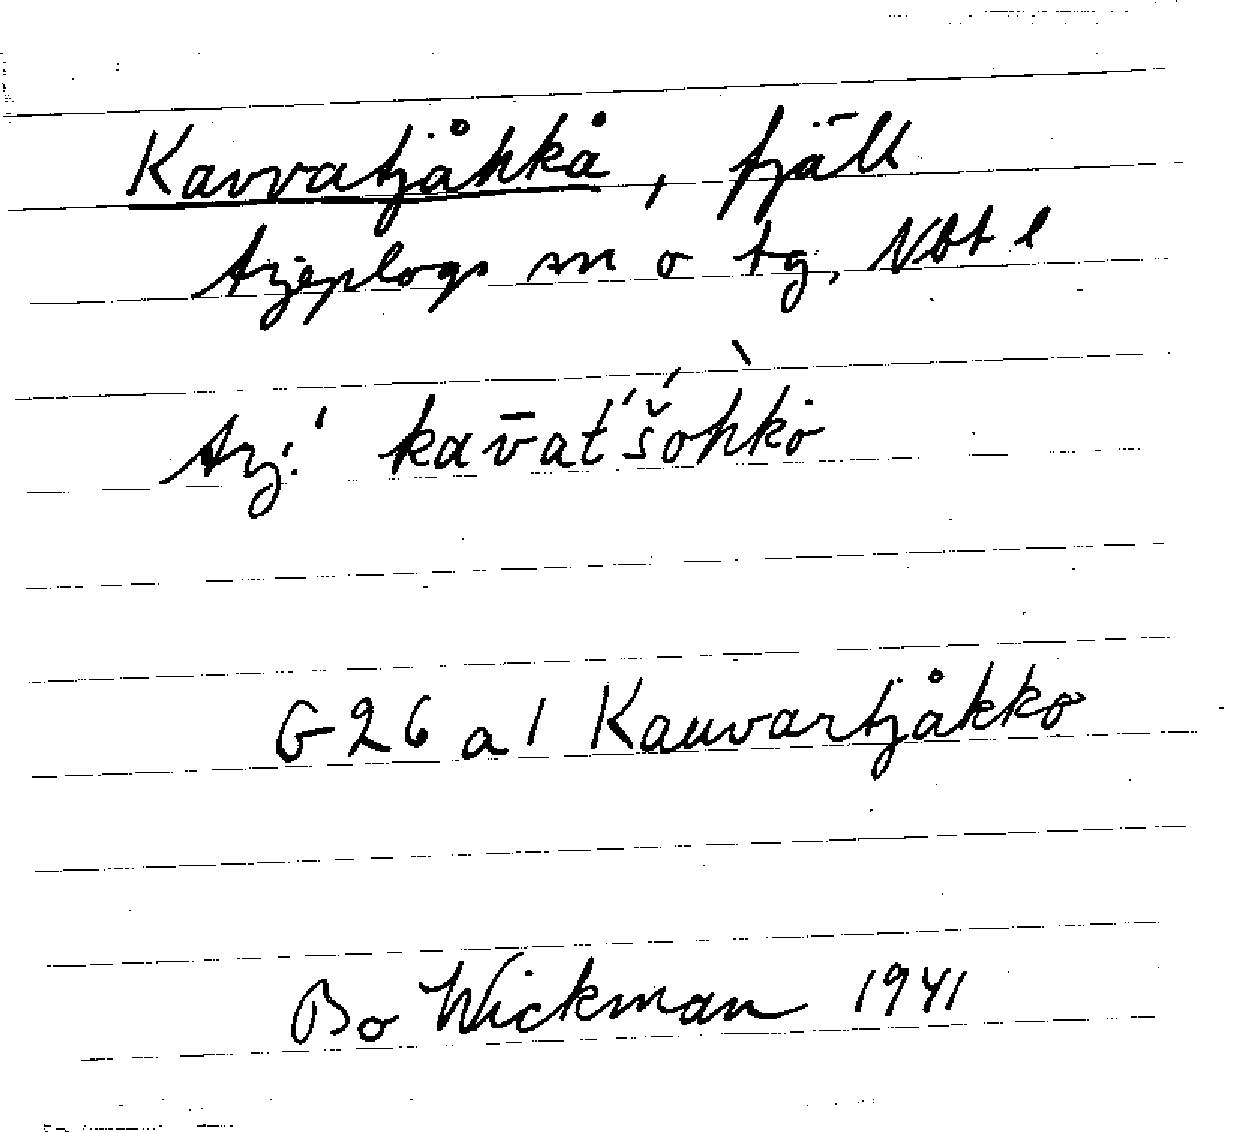 Kavvatjåhkå, fjäll
Arjeplogs sn o tg, Nbt l
Arj: ˈkav̄at́š́ohkȯ̀
G 26 a 1 Kauvartjåkko
Bo Wickman 1941